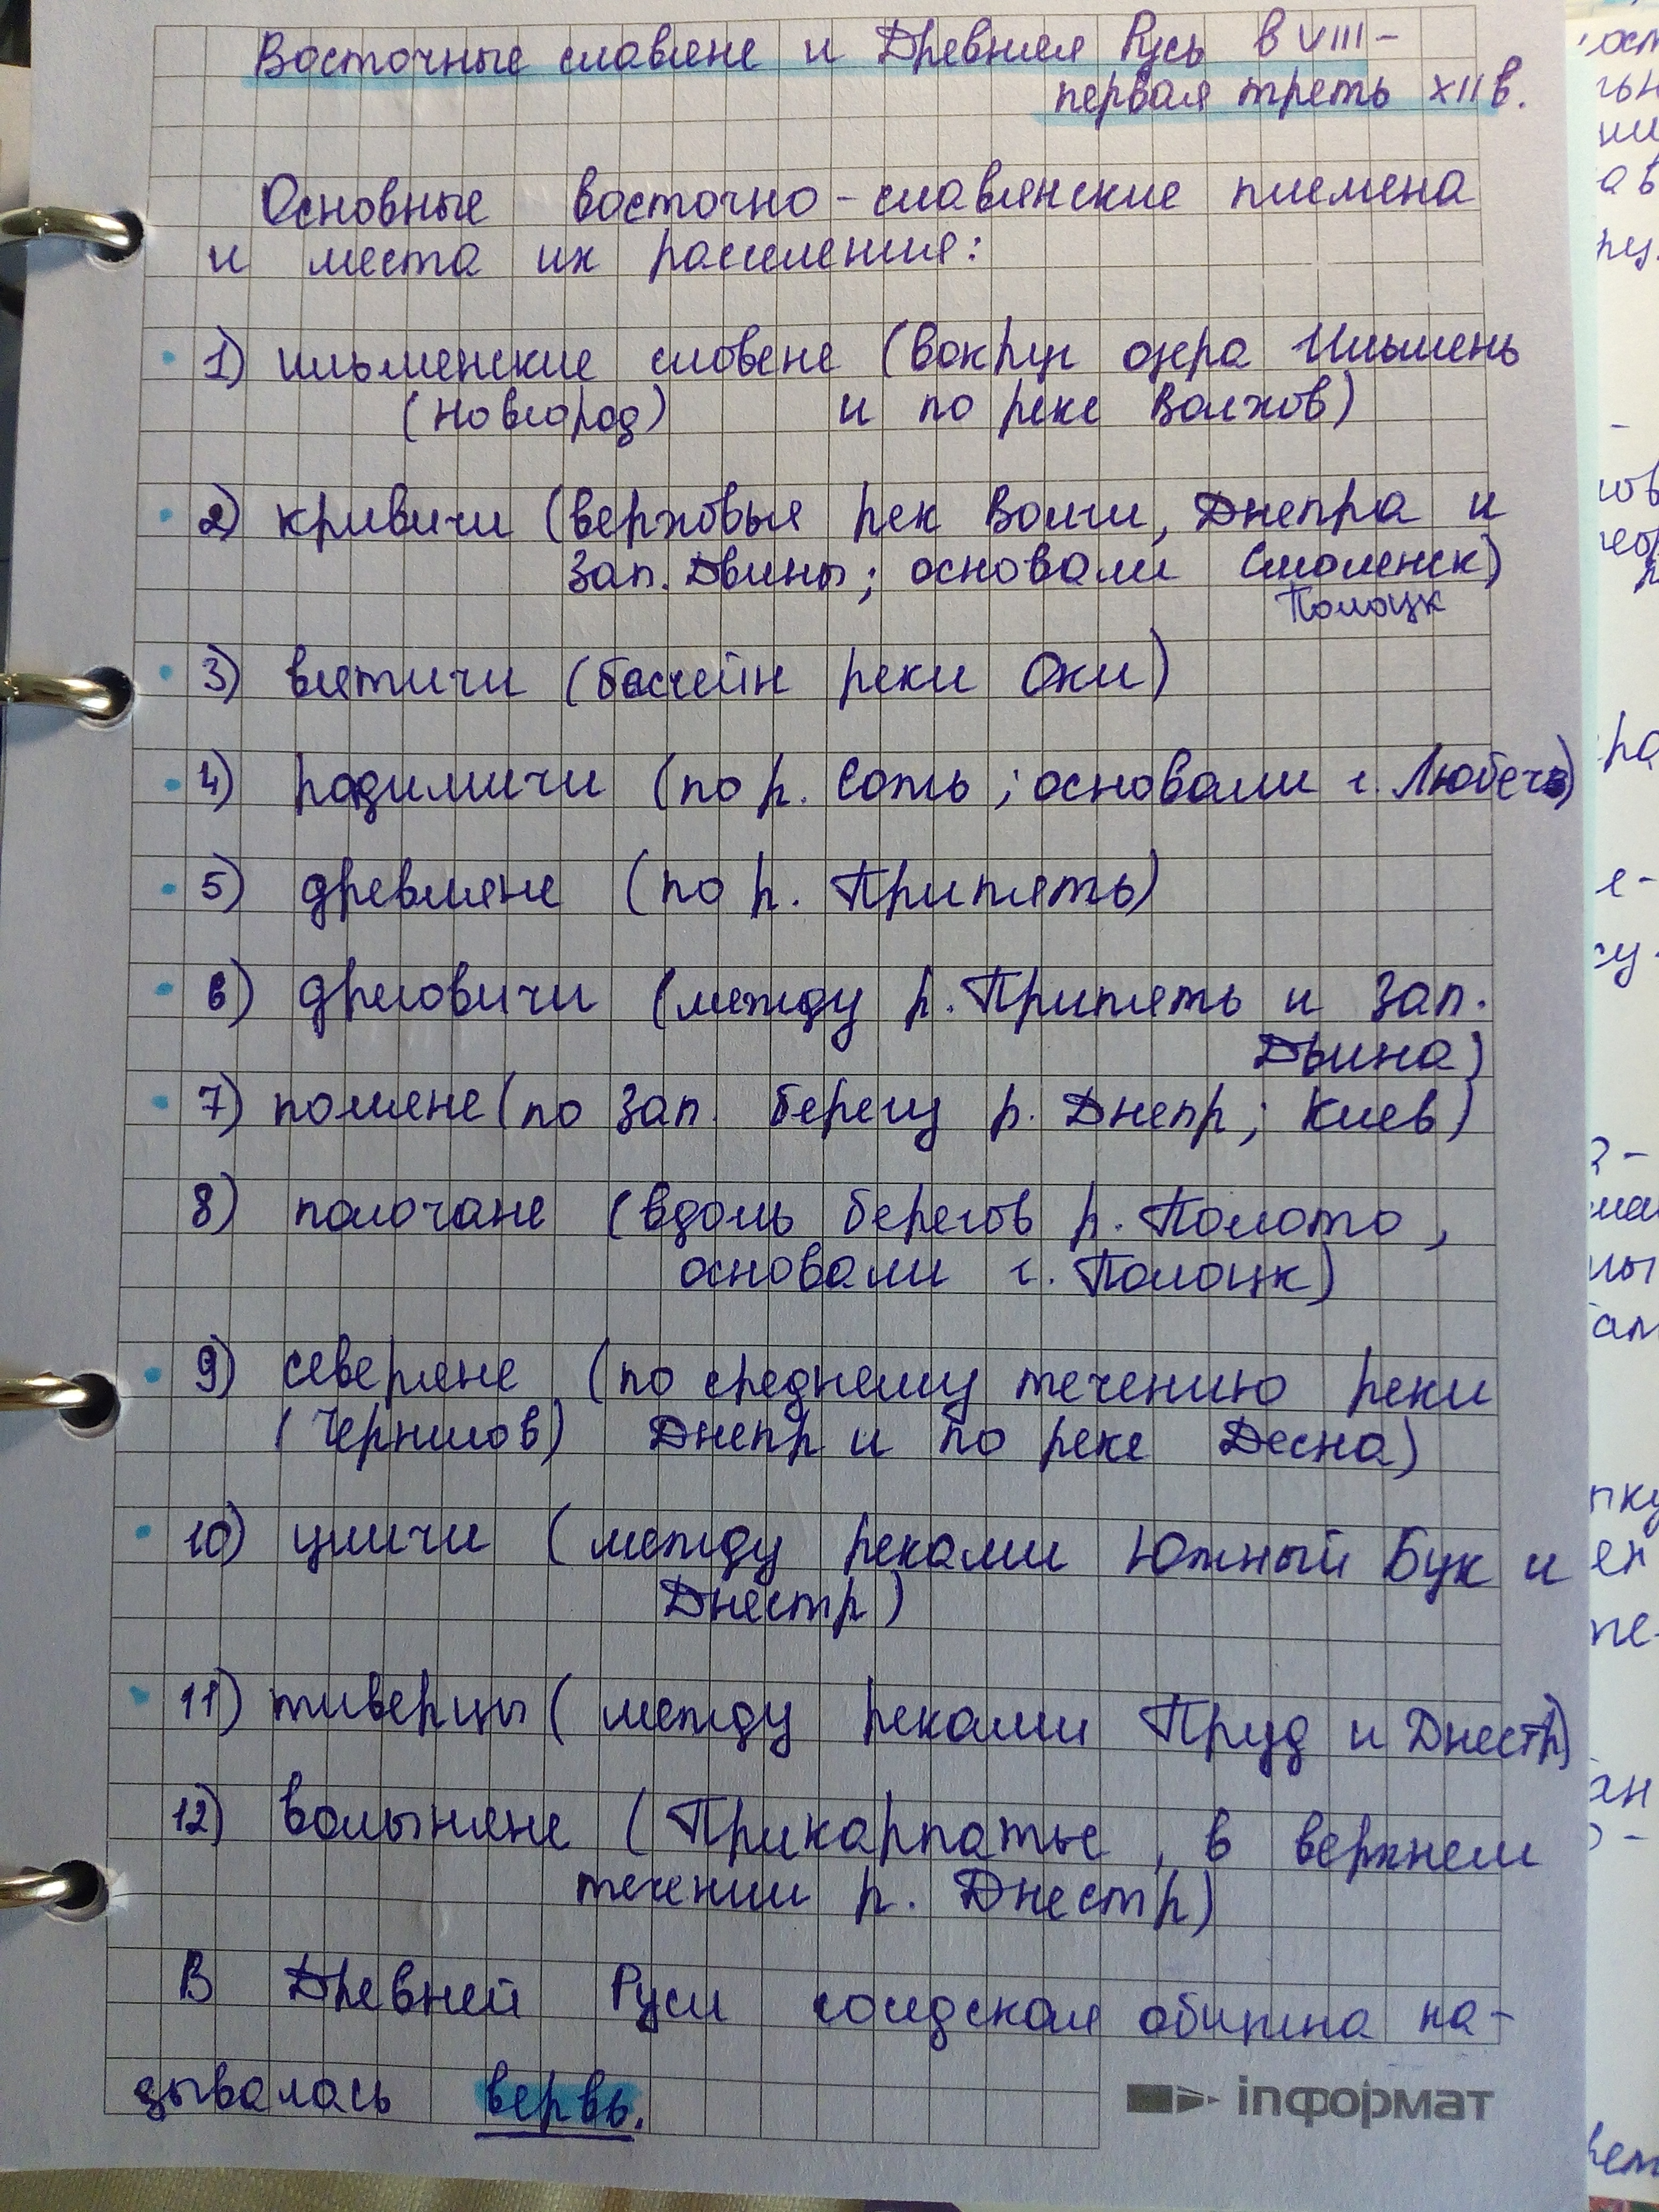 Восточные славяне и Древняя Русь в VIII -
первая треть XII в.
Основные восточно-славянские племена
и места их расселения:
1) ильменские словене (вокруг озера Ильмень
(Новгород) и по реке Волхов)
2) кривичи (верховья рек Волги, Днепра и
Зап. Двины; основали Смоленск)
Полоцк
3) вятичи (бассейн реки Оки)
4) радимичи (по р. Сотъ; основали г. Любечь)
5) древляне (по р. Припять)
6) дреговичи (между р. Припять и Зап.
Двина)
7) поляне (по зап. берегу р. Днепр; Киев)
8) полочане (вдоль берегов р. Полота,
основали г. Полоцк)
9) северяне (по среднему течению реки
(Чернигов) Днепр и по реке Десна)
10) уличи (между реками Южный Бук и
Днестр)
11) тиверцы (между реками Пруд и Днестр)
12) волыняне (Прикарпатье, в верхнем
течении р. Днестр)
В Древней Руси соседская община на-
зывалась вервь.
inформат